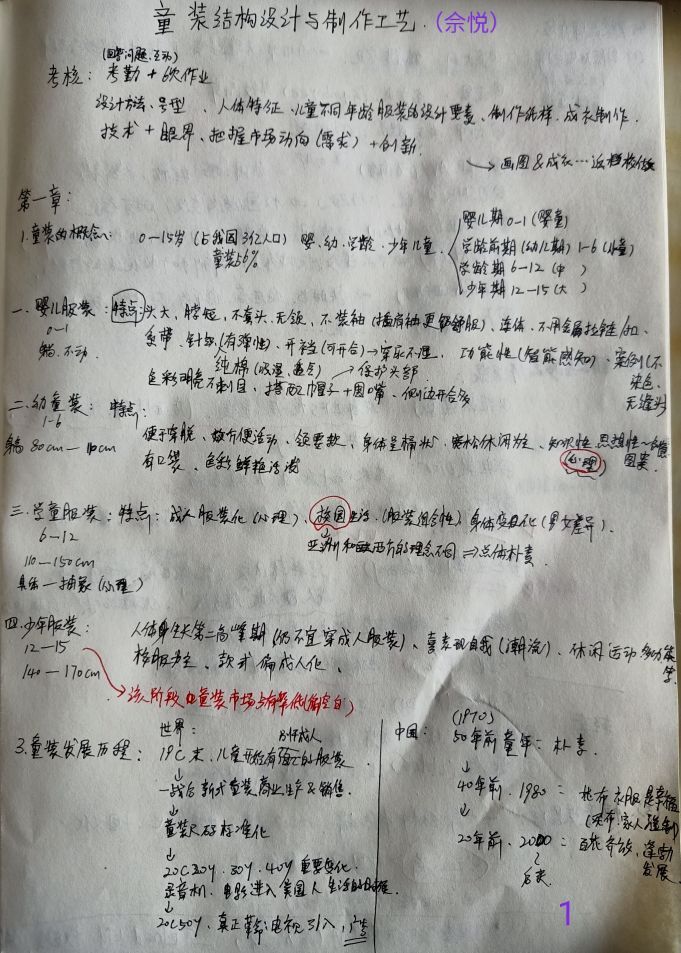 童装结构设计与制作工艺.(佘悦)
(回答问题、互动)
考核：考勤+6次作业
设计方法、号型、人体特征、儿童不同年龄服装的设计要素、制作纸样、成衣制作.
技术+眼界、把握市场动向(需求)+创新.
→画图&成衣…
第一章：
1.童装的概念：0—15岁(占我国3亿人口) 婴、幼、学龄、少年儿童.
童装56%
婴儿期 0-1 (婴童)
学龄前期(幼儿期) 1-6 (小童)
学龄期 6-12 (中 )
少年期 12-15 (大 )
一、婴儿服装：特点：头大、脖短、不套头、无领、不装袖(插肩袖更舒服)、连体、不用金属拉链/扣、
0-1
躺、不动.
系带、针织(有弹性)、开裆(可开合)→穿尿不湿. 功能性(智能感知)、案例(不染色、无缝头)
纯棉(吸湿、透气)
→保护头部.
色彩明亮不刺目、搭配帽子+围嘴、侧边开合多
二、幼童装：特点：
1-6
身高 80cm—110cm
便于穿脱、方便活动、领要软、身体呈桶状、宽松休闲为主、知识性 思想性
(心理) 图案.
有口袋、色彩鲜艳活泼
三.学童服装：特点：成人服装化(心理)、校园生活、(服装组合性)身体变化(男女差异).
6-12
110—150cm
具体—抽象(心理)
亚洲和欧西方的理念不同⇒总体朴素.
四.少年服装：
12-15
140—170cm
人体身生长第二高峰期(仍不宜穿成人服装)、喜表现自我(潮流)、休闲运动
校服为主、款式偏成人化.
→该阶段的童装市场占有率低(有空白)
3.童装发展历程：
世界：
19C末、儿童开始有独立的服装
↓
一战后 新式童装商业生产&销售.
↓
童装尺码标准化
↓
20C20Y、30Y、40Y 重要变化.
录音机、电影进入美国人生活
↓
20C50Y、真正革命：电视引入，广告
中国：
(1970)
50年前童年：朴素.
↓
40年前、1980：花布衣服是幸福
↓
20年前、2000：百花齐放、蓬勃发展.
1